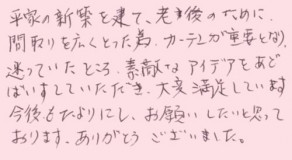 平家の新築を建て、老後のために
間取りを広くとった為、カーテンが重要となり
迷っていたところ、素敵なアイデアをあど
ばいすしていただき、大変満足しています
今後もたよりにし、お願いしたいと思って
おります。ありがとう ございました。